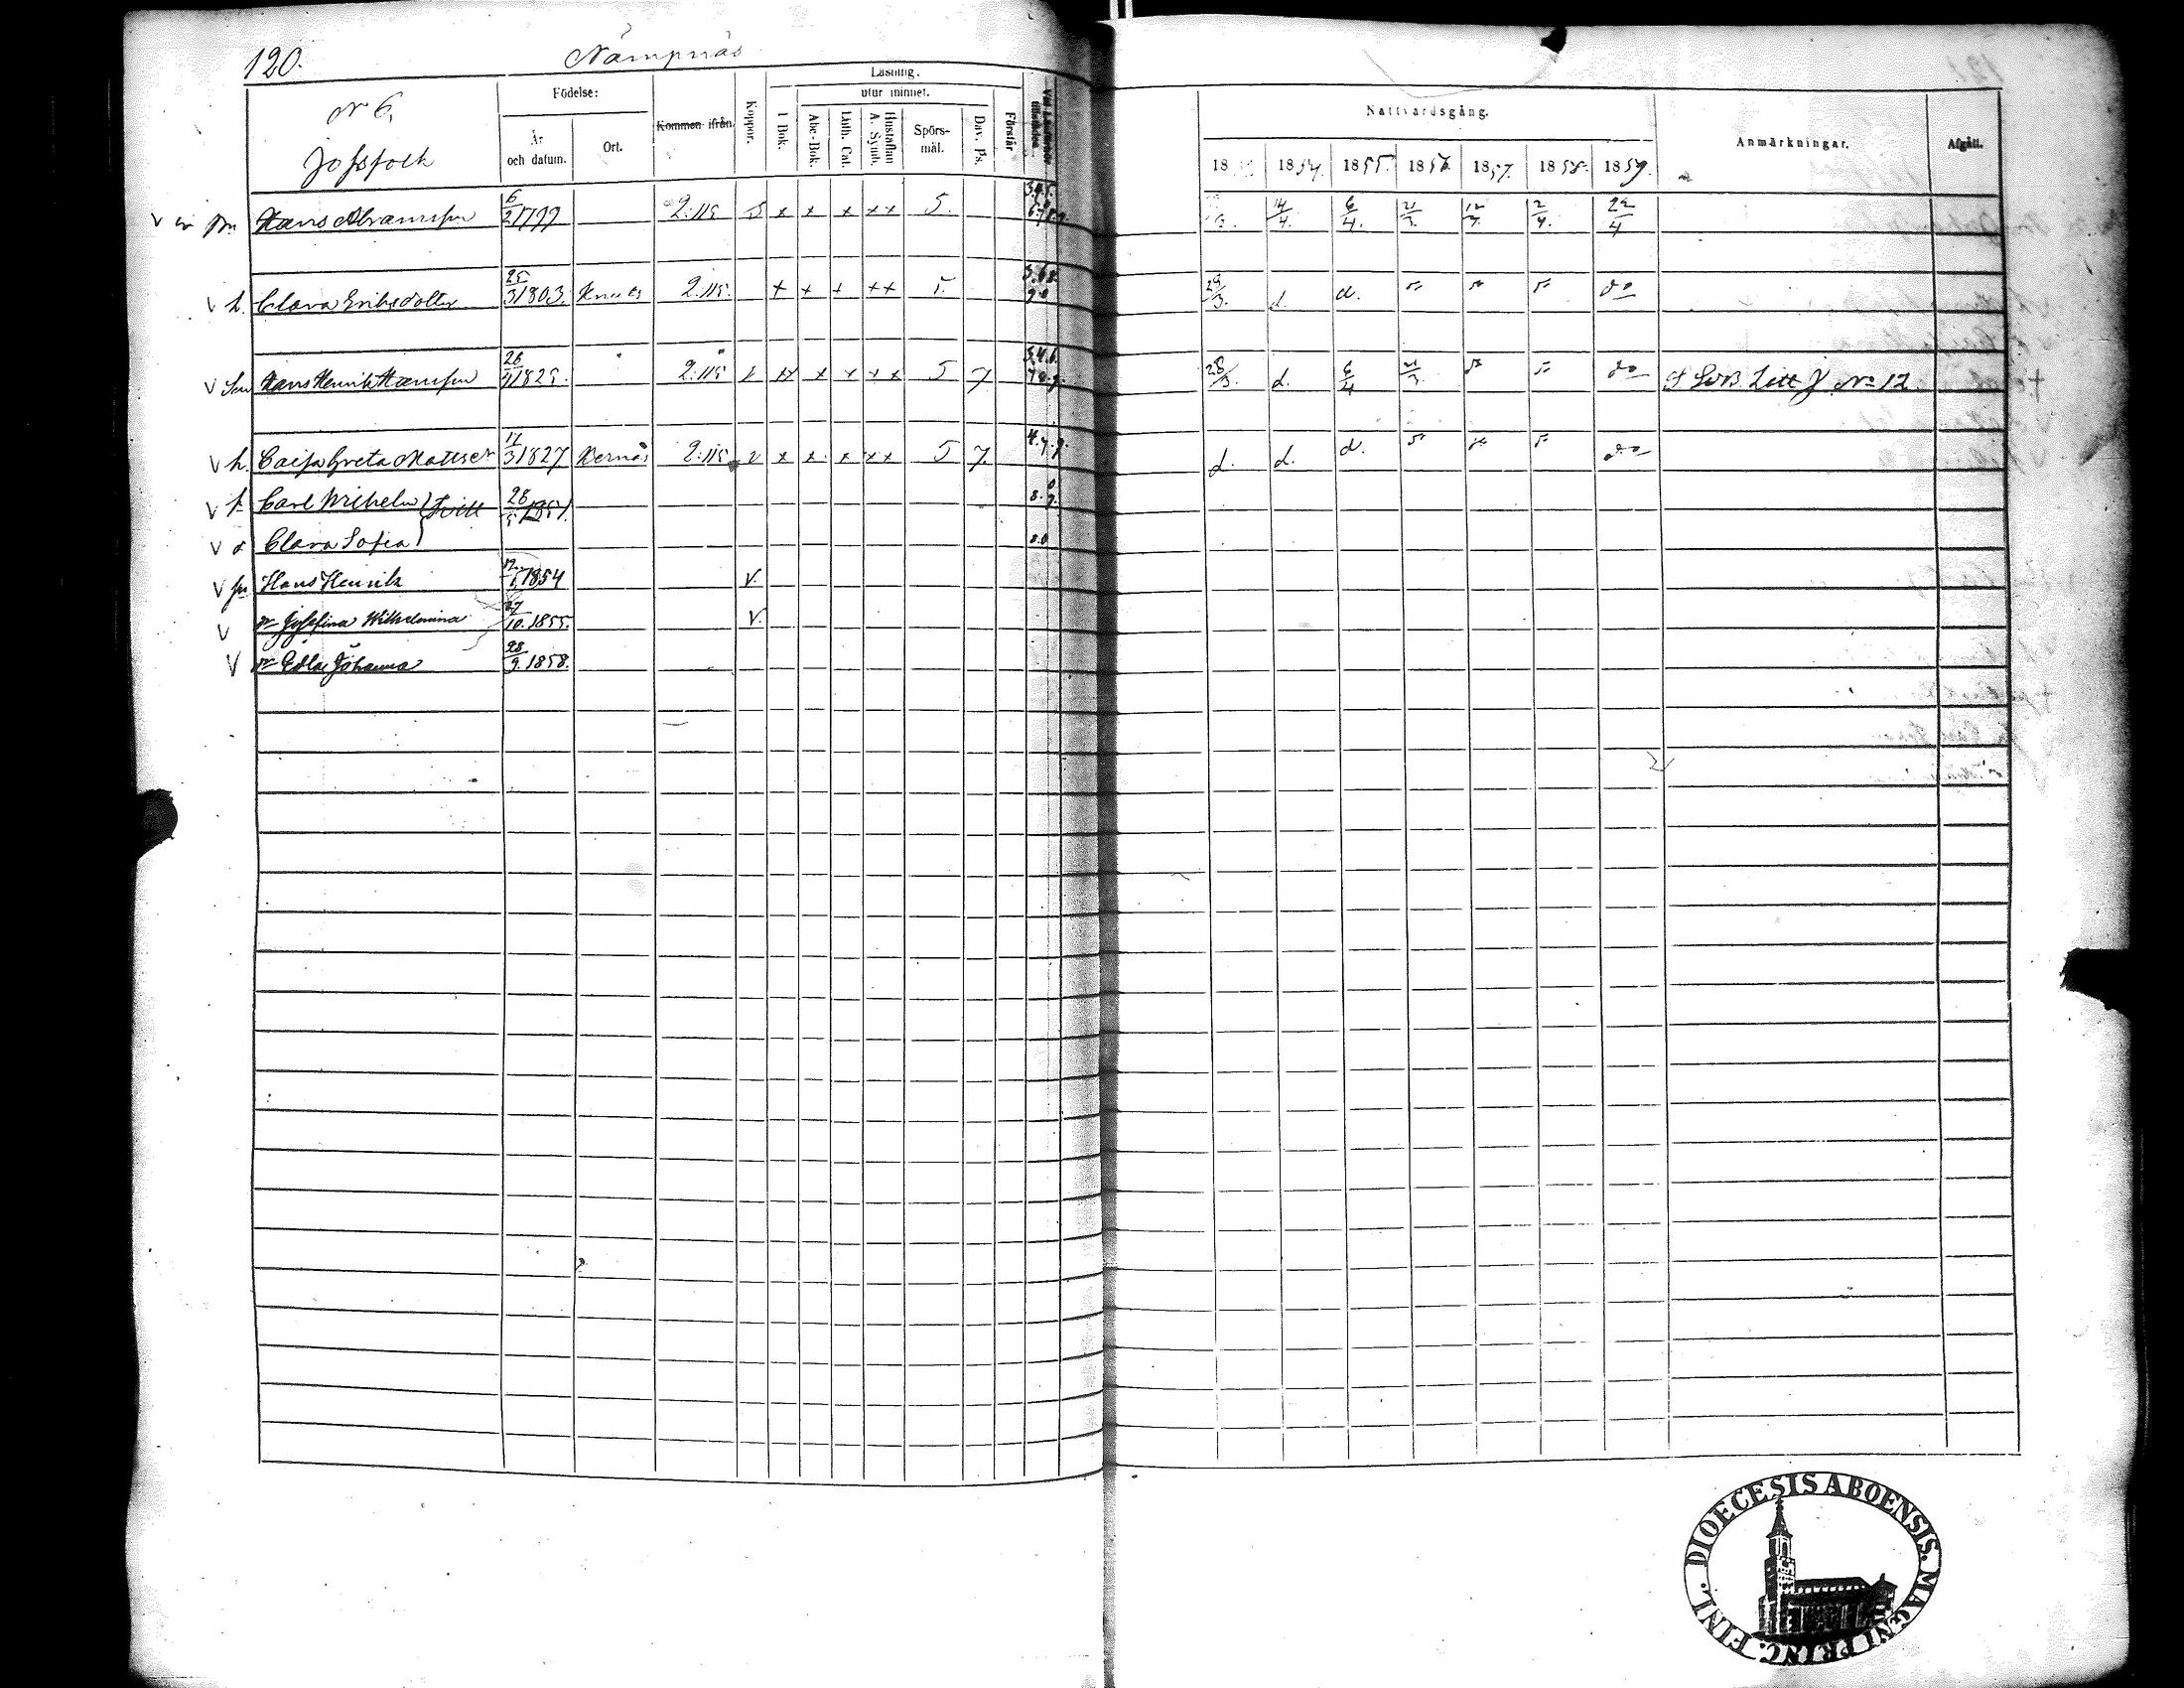 120.
Nämpnäs
No 6,
Jofsfolk
Födelse:
År och datum.
Ort.
Kommen ifrån.
Koppor.
Läsning.
I Bok.
utur minnet.
Abc-Bok.
Luth. Cat.
Hustaflan A. Symb.
Spörs-mål.
Dav. Ps.
Förstår
Nattvardsgång.
18 1854. 1855. 1856. 1857. 1858. 1859.
Anmärkningar.
Afgått.
v Hans Abramsson 6/2 1799 2.115 x x x x x 5. 14/4. 6/4. 21/3. 12/4. 2/4. 22/4
v h. Clara Eriksdotter 25/3 1803. 2.115. x x x x x 5. 29/3. d. d. do
v Hans Henrik Hansson 26/4 1825. 2.115 v x x x x x 5 7 28/3. d. 6/4 21/3 do S. Litt J No 12.
v h. Caisa Greta Mattsdr 14/3 1827 Dernäs 2.115 v x x x x x 5 7. 4.7.9. d. d. d. do
v Carl Wilhelm (Tvill 28/5 1851.
v d Clara Sofia)
v Hans Henrik 1854 v.
v dr Josefina Wilhelmina 27/10. 1855. v.
v dr Edla Johanna 28/9. 1858.
DIOECESIS ABOENSIS. MAGNI PRINC. FINL.